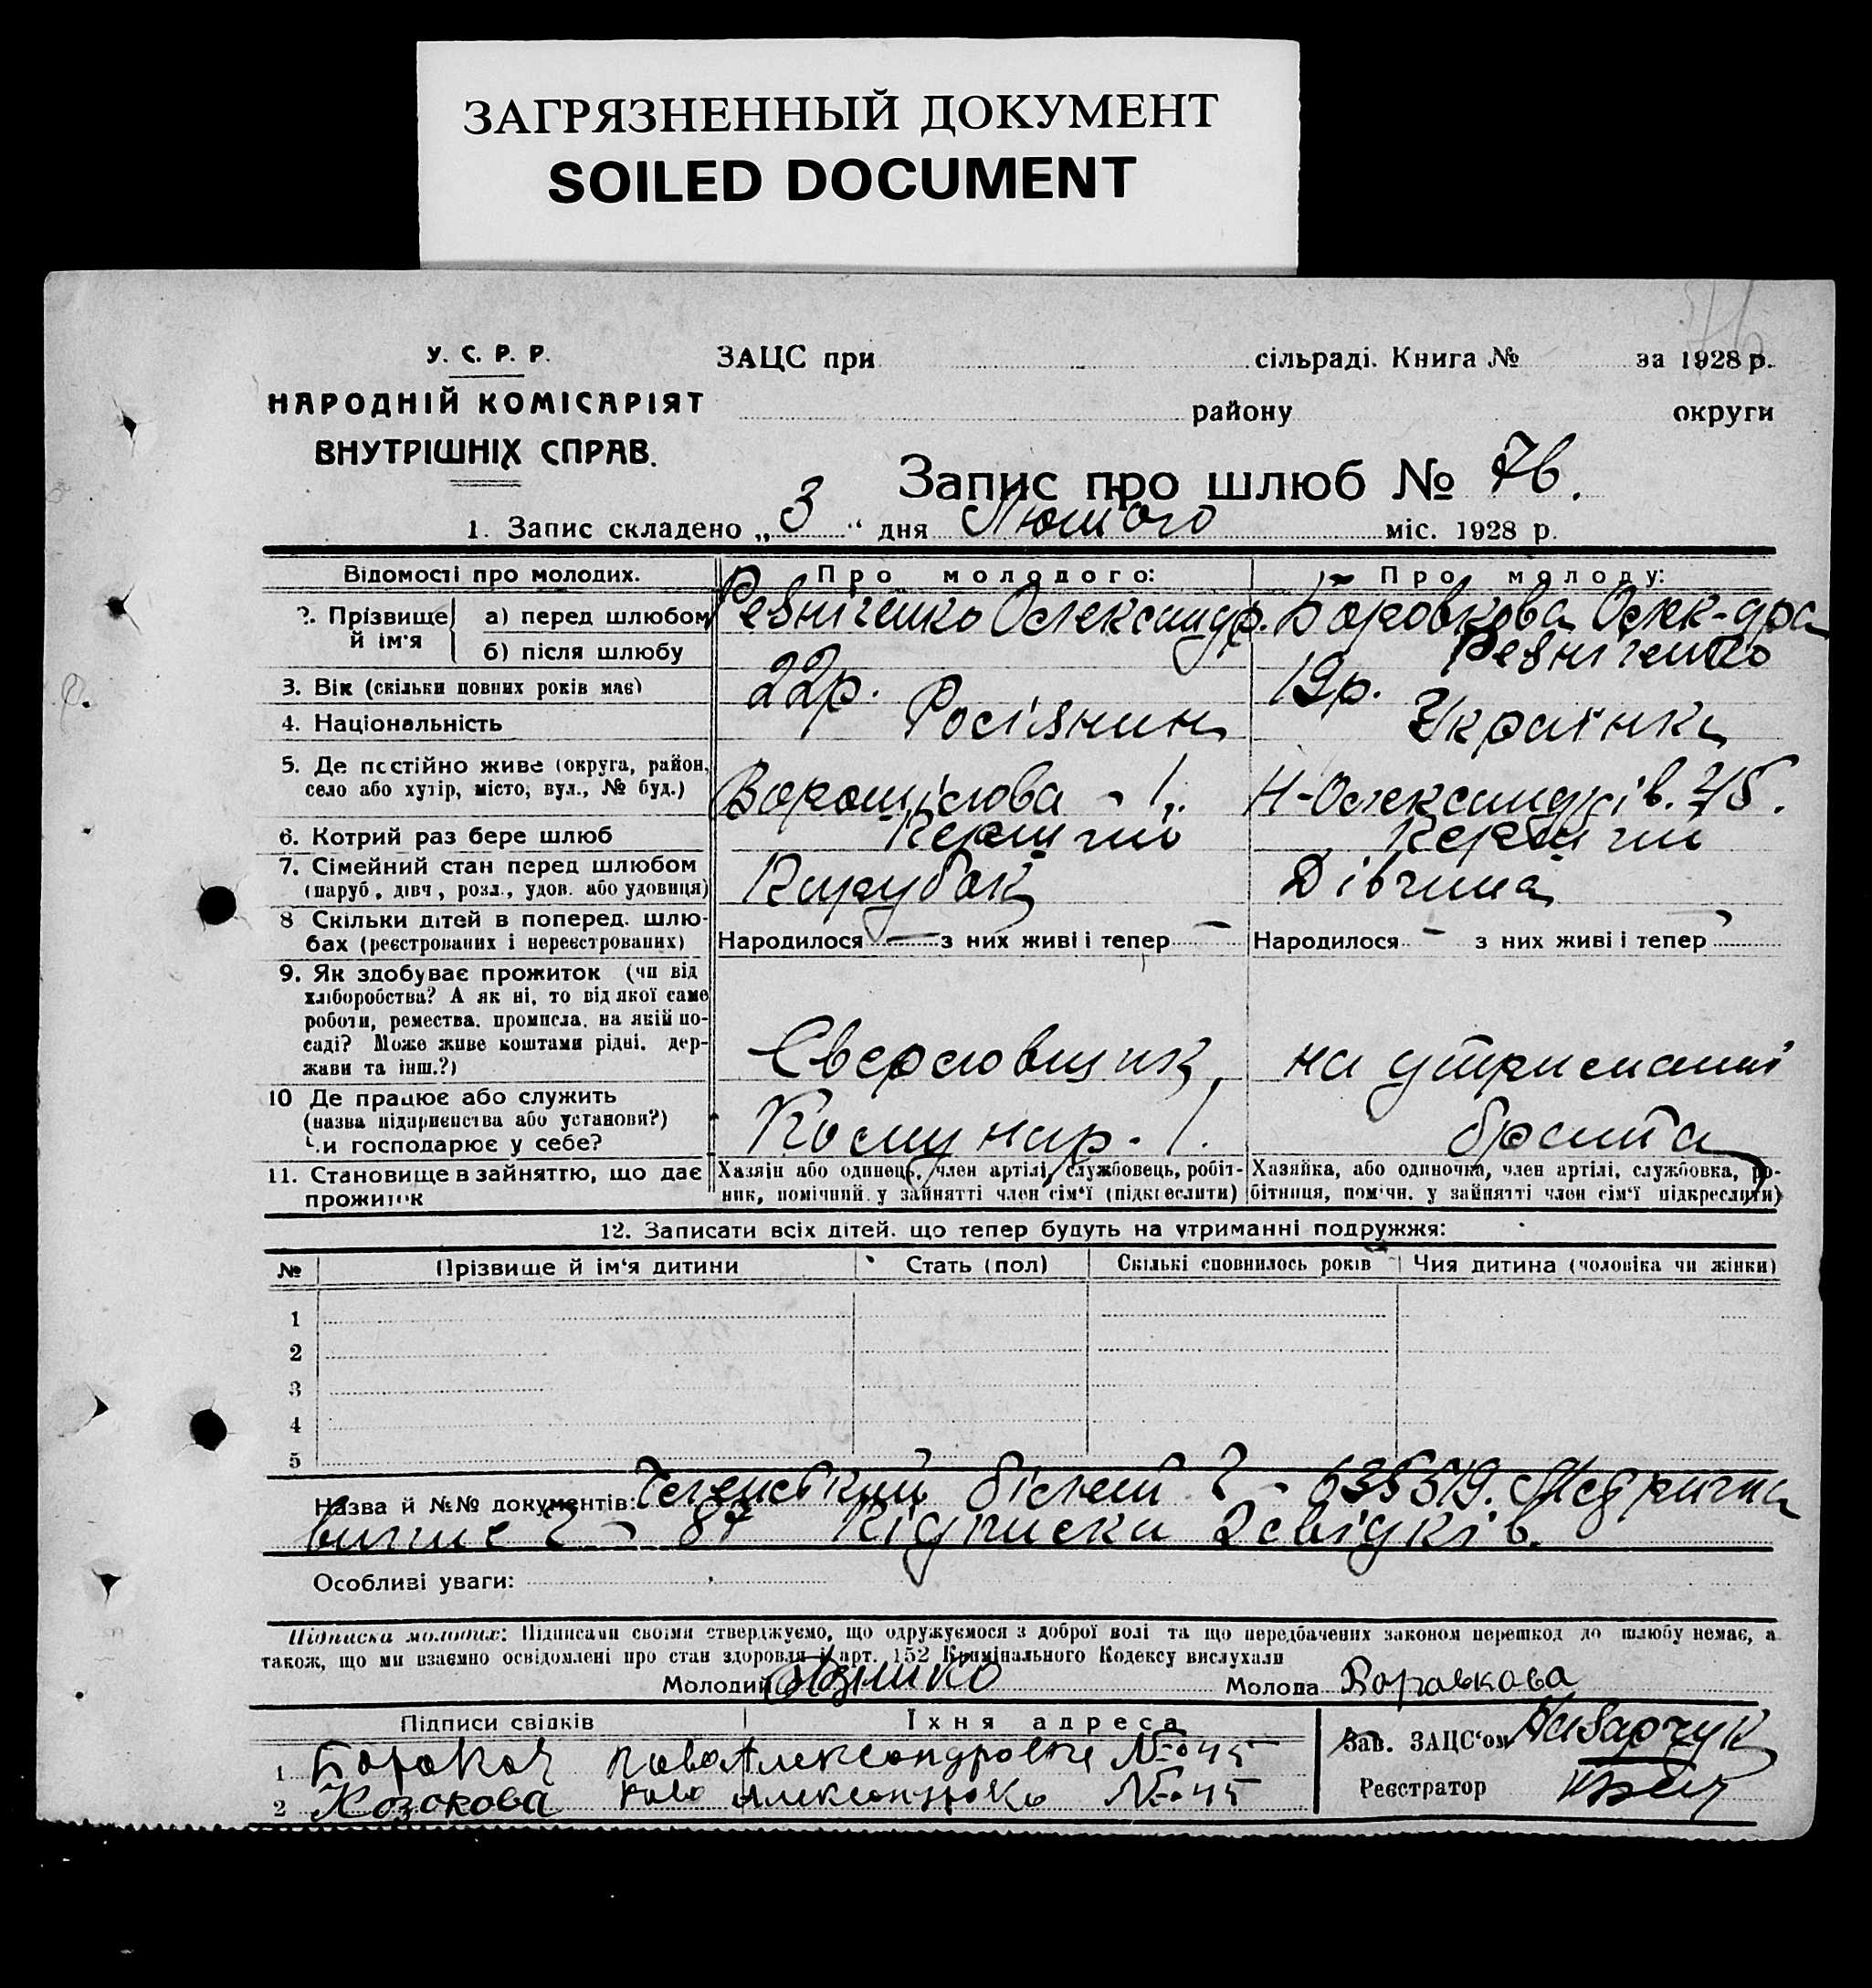 ЗАГРЯЗНЕННЫЙ ДОКУМЕНТ
SOILED DOCUMENT
76
У. С. Р. Р.
НАРОДНІЙ КОМІСАРІЯТ
ВНУТРІШНІХ СПРАВ.
ЗАЦС при сільраді. Книга № за 1928 р.
району округи
Запис про шлюб № 76.
1. Запис складено „3“ дня Лютого міс. 1928 р.
Відомості про молодих. Про молодого: Про молоду:
2. Прізвище й ім'я
а) перед шлюбом Ревніченко Олександр. Боровкова Олек-дра
б) після шлюбу Ревніченко
3. Вік (скільки повних років має) 22р. 19р.
4. Національність Росіянин Українка
5. Де постійно живе (округа, район,
село або хутір, місто, вул., № буд.) Ворошилова - 1. Н-Олександрів. 45.
6. Котрий раз бере шлюб Перший Перший
7. Сімейний стан перед шлюбом
(паруб., дівч., розл., удов. або удовиця) Парубок Дівчина
8 Скільки дітей в поперед. шлю-
бах (реєстрованих і нереєстрованих) Народилося — з них живі і тепер — Народилося - з них живі і тепер
9. Як здобуває прожиток (чи від
хліборобства? А як ні, то від якої саме
роботи, ремества, промисла, на якій по-
саді? Може живе коштами рідні, дер-
жави та інш.?) Сверловщик, на утриманні
10 Де працює або служить
(назва підприємства або установи?)
Чи господарює у себе? Комунар. 1. брата
11. Становище в зайняттю, що дає
прожиток
Хазяїн або одинець, член артілі, службовець, робіт-
ник, помічний у зайнятті член сім'ї (підкреслити)
Хазяйка, або одиночка, член артілі, службовка, ро-
бітниця, помічн. у зайнятті член сім'ї підкреслити)
12. Записати всіх дітей, що тепер будуть на утриманні подружжя:
№ Прізвище й ім'я дитини Стать (пол) Скількі сповнилось років Чия дитина (чоловіка чи жінки)
1
2
3
4
5
Назва й №№ документів: Членський білет 635519. Метрична
випис 87 Підписка свідків.
Особливі уваги:
Підписка молодих: Підписами своїми стверджуємо, що одружуємося з доброї волі та що передбачених законом перешкод до шлюбу немає, а
також, що ми взаємно освідомлені про стан здоровля й арт. 152 Кримінального Кодексу вислухали
Молодий Молода Боравкова
Підписи свідків Їхня адреса
1 Нова Александровка № 45
2 Козакова Ново № 45
Зав. ЗАЦС'ом
Реєстратор